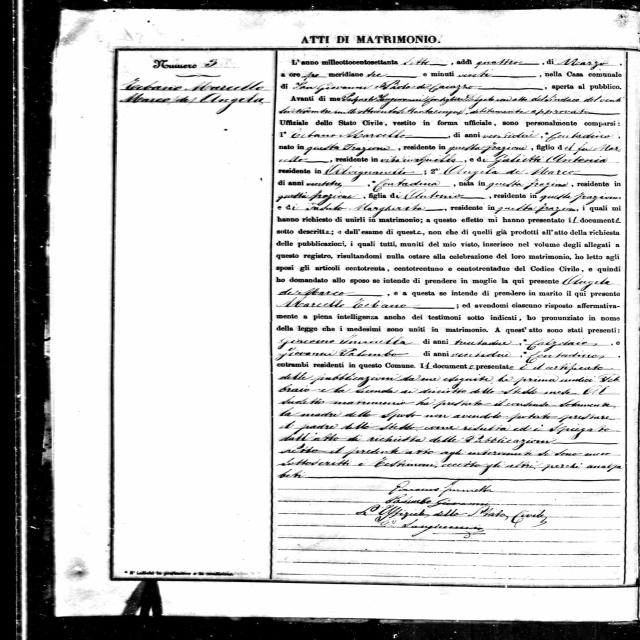 ATTI DI MATRIMONIO.
Numero 5
Tebano Marcello
Marco de Angela
L'anno millecottocentosettanta sette, addì quattro di Marzo
a ore po meridiane tre e minuti venti, nella Casa comunale
di San Giovanni e Paolo di Cajazzo, aperta al pubblico.
Avanti di me
Uffiziale dello Stato Civile, vestito in forma ufficiale, sono personalmente comparsi:
1° Tebano Marcello, di anni ventidue, Contadino,
nato in questa frazione, residente in questa frazione, figlio del fu Mar
cello, residente in vita in questa, e di Galietti Antonia
residente in; 2° Angela de Marco
di anni ventitre, Contadina, nata in questa frazione, residente in
questa frazione, figlia di Antonio, residente in questa frazione
e di Margherita, residente in questa frazione, i quali mi
hanno richiesto di unirli in matrimonio; a questo effetto mi hanno presentato il document
sotto descritto; e dall'esame di quest, non che di quelli già prodotti all'atto della richiesta
delle pubblicazioni, i quali tutti, muniti del mio visto, inserisco nel volume degli allegati a
questo registro, risultandomi nulla ostare alla celebrazione del loro matrimonio, ho letto agli
sposi gli articoli centotrenta, centotrentuno e centotrentadue del Codice Civile, e quindi
ho domandato allo sposo se intende di prendere in moglie la qui presente Angela
de Marco, e a questa se intende di prendere in marito il qui presente
Marcello Tebano; ed avendomi ciascuno risposto affermativamente
a piena intelligenza anche dei testimoni sotto indicati, ho pronunziato in nome
della legge che i medesimi sono uniti in matrimonio. A quest'atto sono stati presenti:
Giacomo, di anni, Calzolaio, e
Giovanni Palumbo di anni ventidue, Contadino,
entrambi residenti in questo Comune. Il document presentato è il certificato
delle pubblicazioni da me eseguite la prima undici Feb
braio e la seconda ai diciotto dello stesso mese. Al
sudetto matrimonio ha prestato il consenso
la madre dello sposo non avendolo potuto prestare
il padre dello stesso come risulta ed è spiegato
dall'atto di richiesta delle Pubblicazioni
Letto il presente atto agli intervenuti si sono meco
sottoscritti i Testimoni, eccetto gli altri, perchè analfa
beti
Giacomo
Palumbo Giovanni
L'Uffiziale dello Stato Civile